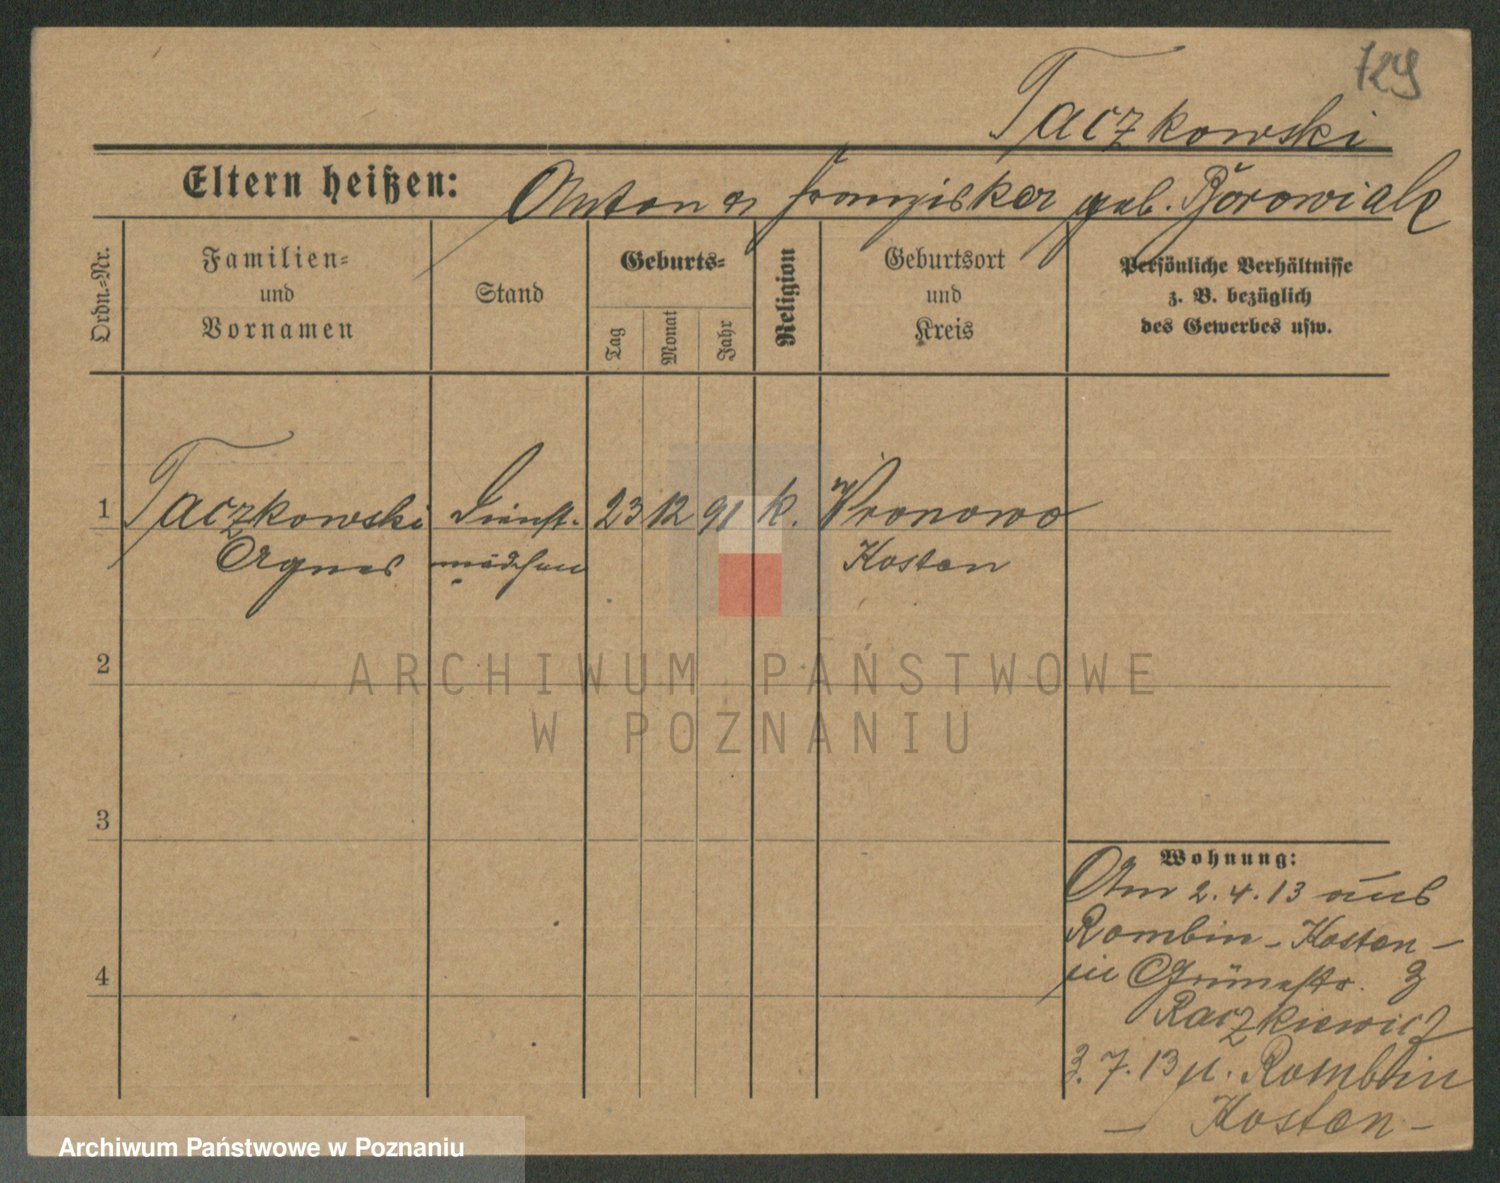 729
Taczkowski
Eltern heißen: Anton u Franziska geb. Borowiak
Ordn.-Nr.
Familien-
und
Vornamen
Stand
Geburts-
Tag
Monat
Jahr
Religion
Geburtsort
und
Kreis
Persönliche Verhältnisse
z. B. bezüglich
des Gewerbes usw.
1 Taczkowski Dienst- 23 12 91 k. Wronowo
Agnes mädchen Kosten
2
3
4
Wohnung:
Am 2.4.13 aus
Rombin - Kosten -
in Grünestr. 3
Raczkiewicz
3.7.13 n. Rombin
- Kosten -
ARCHIWUM PAŃSTWOWE
W POZNANIU
Archiwum Państwowe w Poznaniu